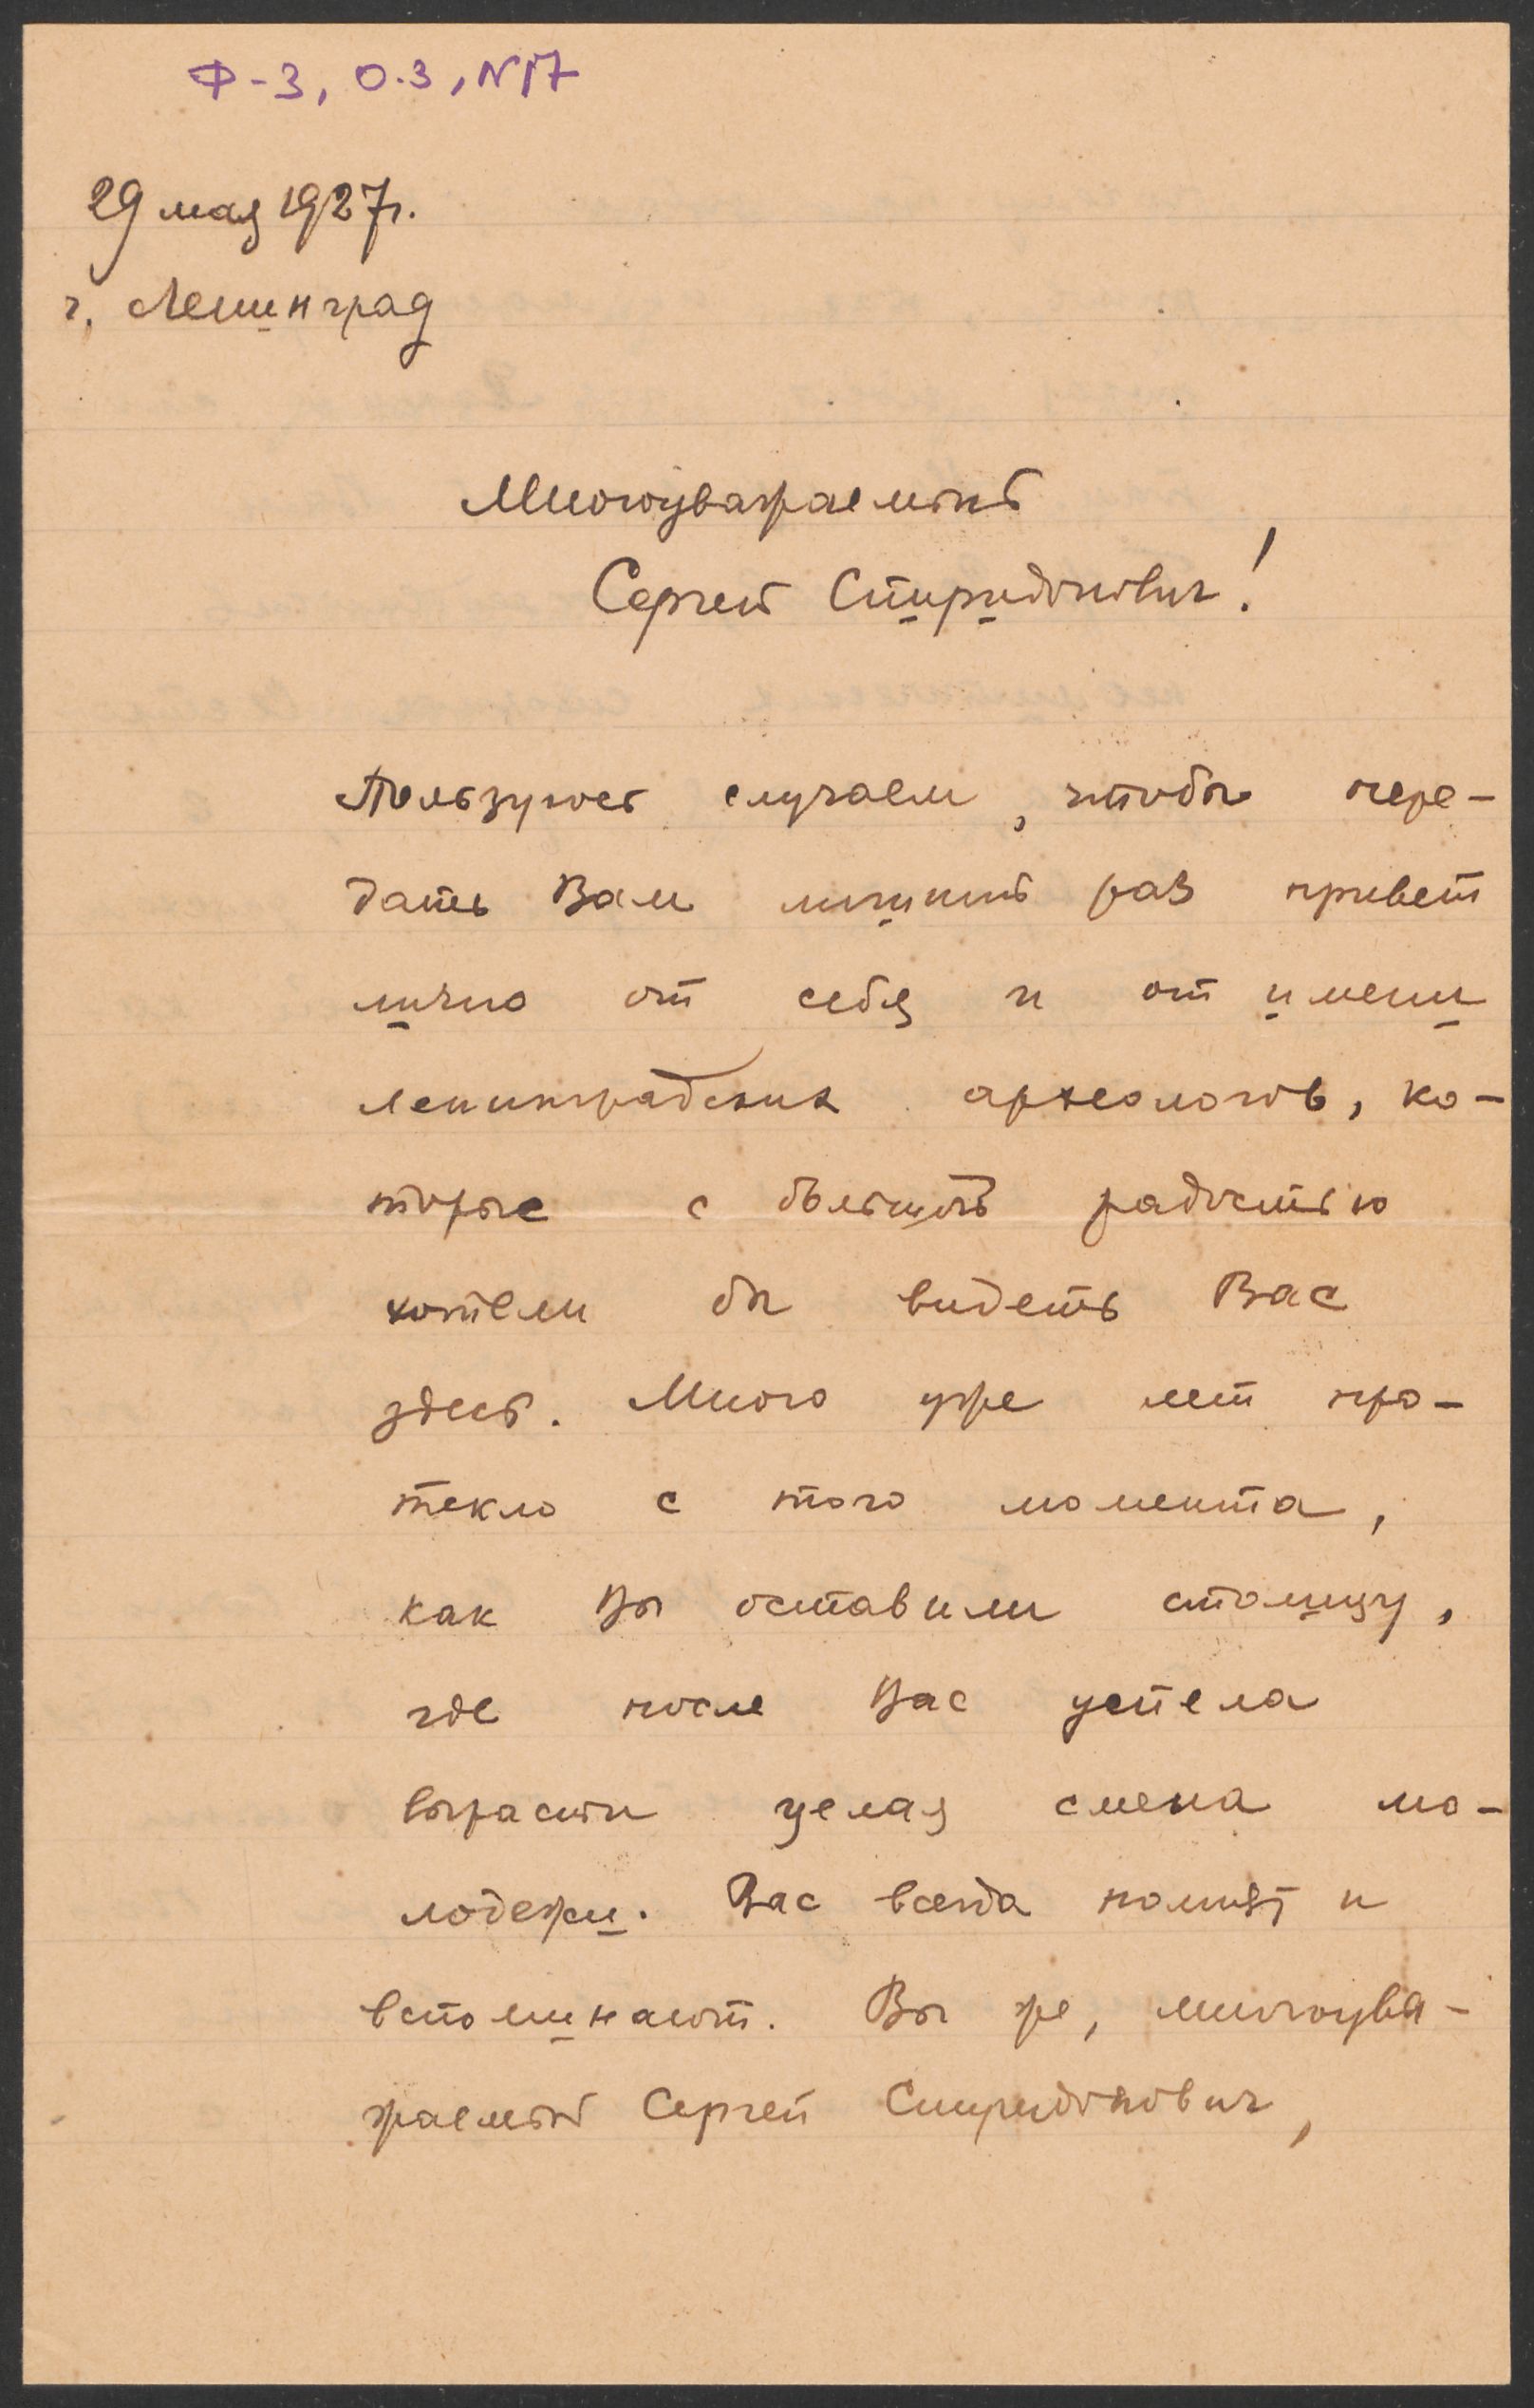 Ф-3, О.3, N17
29 мая 1927г.
г. Ленинград
Многоуважаемый
Сергей Спиридонович!
Пользуюсь случаем, чтобы пере-
дать Вам лишний раз привет
лично от себя и от имени
ленинградских археологов, ко-
торые с большой радостью
хотели бы видеть Вас
здесь. Много уже лет про-
текло с того момента,
как Вы оставили столицу,
где после Вас успела
вырасти целая смена мо-
лодежи. Вас всегда помнят и
вспоминают. Вы же, многоува-
жаемый Сергей Спиридонович,